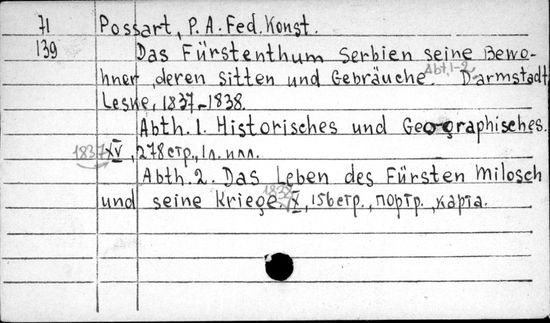 71 Possart, P. A. Fed. Konst.
139 Das Fürstenthum Serbien seine Bewo-
hner, deren Sitten und Gebräuche. Abt. 1-2. Darmstadt,
Leske, 1837-1838.
Abth. 1. Historisches und Geographisches.
1837 XV, 278 стр., 1 л. илл.
Abth. 2. Das Leben des Fürsten Milosch
und seine Kriege. 1838 X, 156 стр., портр., карта.